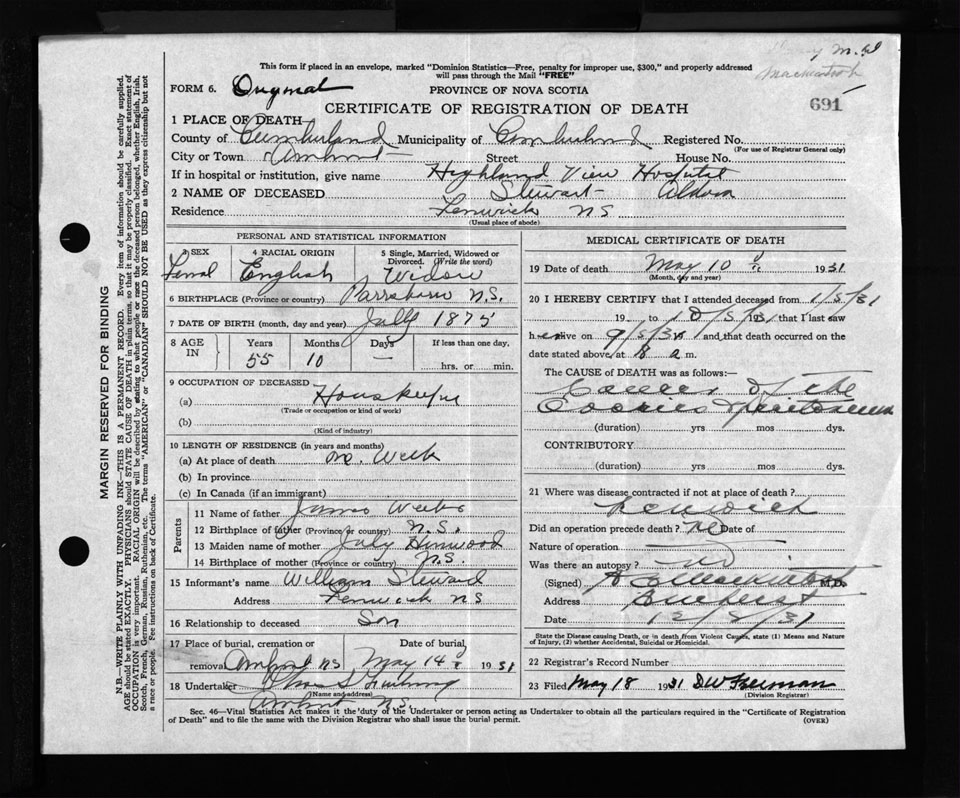 This form if placed in an envelope, marked "Dominion Statistics—Free, penalty for improper use, $300," and properly addressed
will pass through the Mail "FREE"
M.d
FORM 6. Original PROVINCE OF NOVA SCOTIA
CERTIFICATE OF REGISTRATION OF DEATH 691
1 PLACE OF DEATH
County of Cumberland Municipality of Cumberland Registered No.
(For use of Registrar General only)
City or Town Amherst Street House No.
If in hospital or institution, give name Highland View Hospital
2 NAME OF DECEASED Stewart
Residence Fenwick NS
(Usual place of abode)
PERSONAL AND STATISTICAL INFORMATION
3 SEX 4 RACIAL ORIGIN 5 Single, Married, Widowed or
Divorced. (Write the word)
Femal English Widow
6 BIRTHPLACE (Province or country) Parrsboro N.S.
7 DATE OF BIRTH (month, day and year) July 1875
8 AGE IN Years Months Days If less than one day,
55 10 — hrs. or min.
9 OCCUPATION OF DECEASED
(a) Houskeeper
(Trade or occupation or kind of work)
(b)
(Kind of industry)
10 LENGTH OF RESIDENCE (in years and months)
(a) At place of death one Week
(b) In province
(c) In Canada (if an immigrant)
Parents
11 Name of father James
12 Birthplace of father (Province or country) N.S.
13 Maiden name of mother July
14 Birthplace of mother (Province or country) N.S.
15 Informant's name William Steward
Address Fenwick NS
16 Relationship to deceased Son
17 Place of burial, cremation or Date of burial
removal Amherst NS May 14 1931
18 Undertaker
(Name and address)
Amherst NS
MEDICAL CERTIFICATE OF DEATH
19 Date of death May 10 1931
(Month, day and year)
20 I HEREBY CERTIFY that I attended deceased from 1/5/31
19 to 10/5/31 that I last saw
h er alive on 9/5/31 and that death occurred on the
date stated above, at 8 a m.
The CAUSE of DEATH was as follows:—
Cancer of the
(duration) yrs mos dys.
CONTRIBUTORY
(duration) yrs mos dys.
21 Where was disease contracted if not at place of death?
Fenwick
Did an operation precede death? no Date of
Nature of operation
Was there an autopsy? no
(Signed) M.D.
Address Amherst
Date 12/5/31
State the Disease causing Death, or in death from Violent Causes, state (1) Means and
Nature of Injury, (2) whether Accidental, Suicidal or Homicidal.
22 Registrar's Record Number
23 Filed May 18 1931 DW Freeman
(Division Registrar)
Sec. 46—Vital Statistics Act makes it the duty of the Undertaker or person acting as Undertaker to obtain all the particulars required in the "Certificate of Registration
of Death" and to file the same with the Division Registrar who shall issue the burial permit. (OVER)
MARGIN RESERVED FOR BINDING
N.B.—WRITE PLAINLY WITH UNFADING INK—THIS IS A PERMANENT RECORD. Every item of information should be carefully supplied.
AGE should be stated EXACTLY. PHYSICIANS should STATE CAUSE OF DEATH in plain terms, so that it may be properly classified. Exact statement of
OCCUPATION is very important. RACIAL ORIGIN will be described by stating to what people or race the deceased person belonged, whether English, Irish,
Scotch, French, German, Russian, Ruthenian, etc. The terms "AMERICAN" or "CANADIAN" SHOULD NOT BE USED as they express citizenship but not
a race or people. See instructions on back of Certificate.